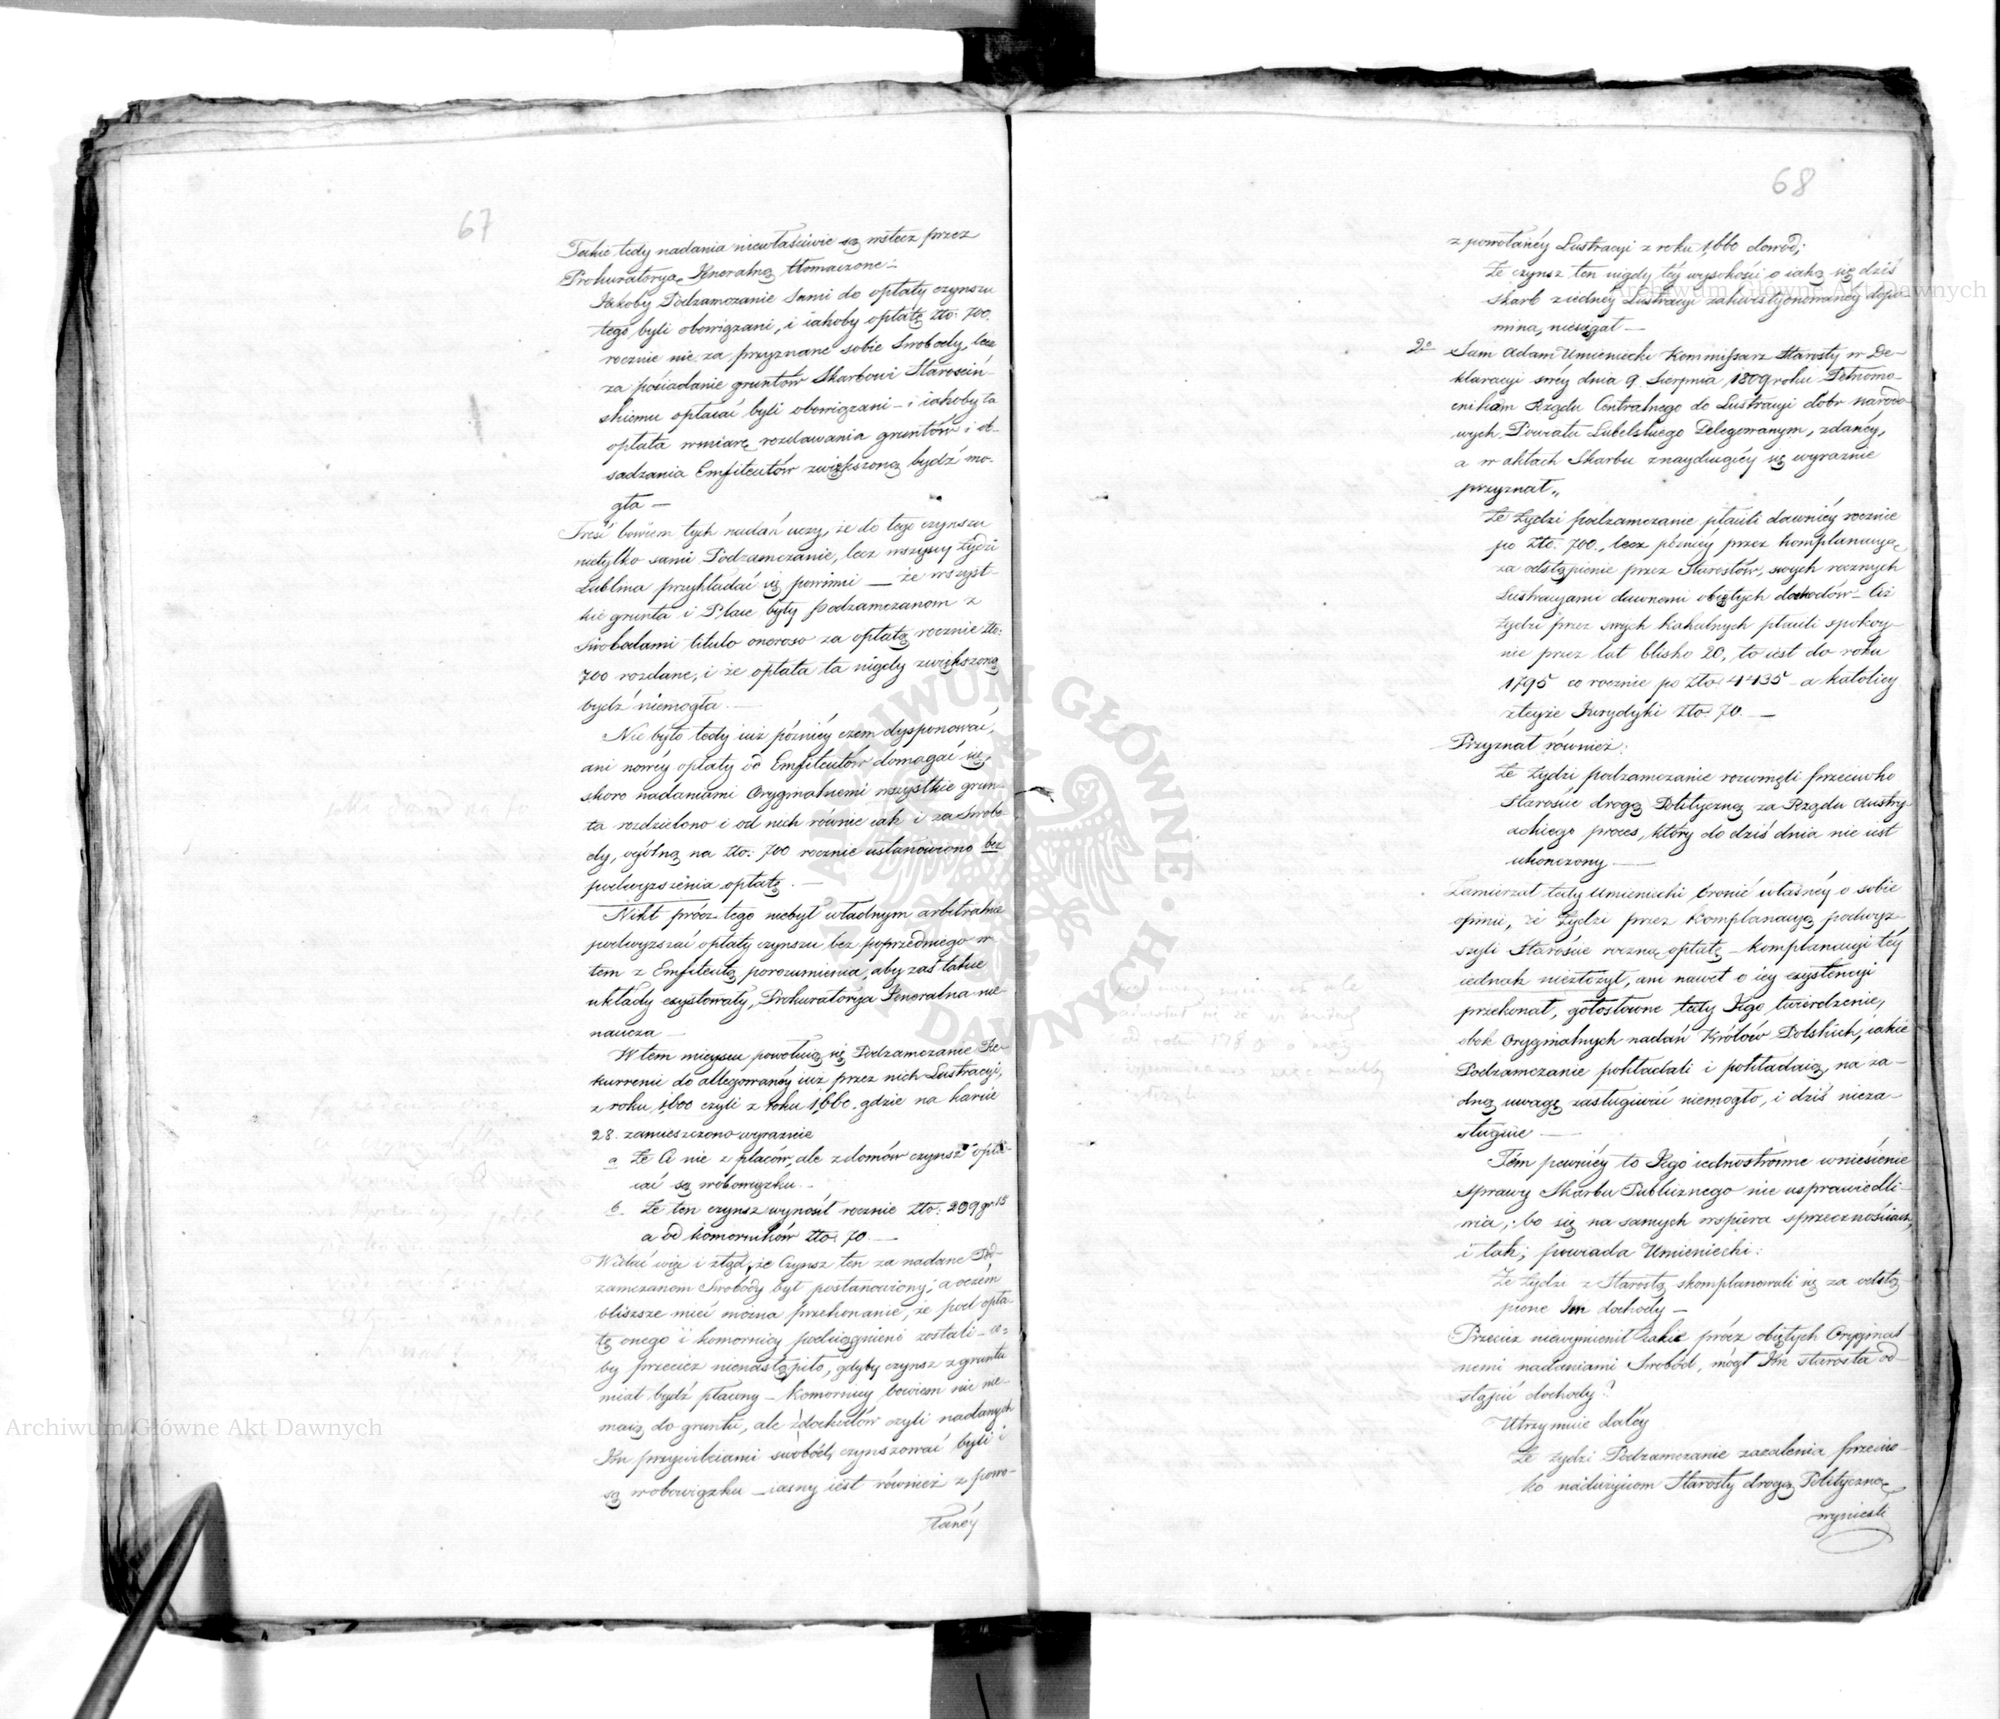 67
Takie tedy nadania niewłaściwie są wstecz przez
Prokuratoryą Jeneralną tłomaczone:
Jakoby Podzamczanie sami do opłaty czynszu
tego byli obowiązani, i iakoby opłatę Zło: 700.
rocznie nie za przyznane sobie Swobody, lecz
za posiadanie gruntów Skarbowi Starościń-
skiemu opłacać byli obowiązani – i iakoby ta
opłata wmiarę rozdawania gruntów i o-
sadzania Emfiteutów zwiększoną bydź mo-
gła —
Treść bowiem tych nadań uczy, że do tego czynszu
nietylko sami Podzamczanie, lecz wszyscy żydzi
Lublina przykładać się powinni — że wszyst-
kie grunta i Place były podzamczanom z
swobodami titulo oneroso za opłatą rocznie Zło:
700 rozdane, i że opłata ta nigdy zwiększoną
bydź niemogła. —
Nie było tedy iuż późniéy czem dysponować,
ani nowéy opłaty od Emfiteutów domagać się,
skoro nadaniami Oryginalnemi wszystkie grun-
ta rozdzielono i od nich równie iak i za Swobo-
dy, ogólną na Zło: 700 rocznie ustanowiono bez
podwyższenia opłatę. —
Nikt prócz tego niebył władnym arbitralnie
podwyższać opłaty czynszu bez poprzedniego w
tem z Emfiteutą porozumienia, aby zaś takie
układy exystowały, Prokuratorya Jeneralna nie
naucza —
W tem mieyscu powołuią się Podzamczanie Re-
kurrenci do allegowanéy iuż przez nich Lustracyi,
z roku 1,600 czyli z roku 1,660. gdzie na karcie
28. zamieszczono wyraźnie
a Że Ci nie z placów, ale z domów czynsz opła-
cać są wobowiązku. –
b. Że ten czynsz wynosił rocznie Zło: 299 gr 15
a od komorników Zło: 70 —
Widać więc i ztąd, że Czynsz ten za nadane Pod-
zamczanom Swobody był postanowiony; a oczém
bliższe mieć można przekonanie, że pod opła-
tę onego i komornicy podciągnieni zostali – co-
by przecież nienastąpiło, gdyby czynsz z gruntu
miał bydź płacony – Komornicy bowiem nic nie-
maią do gruntu, ale z dochodów czyli nadanych
Im przywileiami swobód, czynszować byli i
są wobowiązku – iasny iest również z powo-
łanéy
68
z powołanéy Lustracyi z roku 1,660 dowód;
Że czynsz ten nigdy téy wysokości o iaką się dziś
Skarb z iednéy Lustracyi zakwestyonowanéy dopo-
mina, niesięgał —
2o Sam Adam Umieniecki Kommissarz Starosty w De-
klaracyi swéy dnia 9. Sierpnia 1809 roku Pełnomo-
cnikom Rządu Centralnego do Lustracyi dóbr narodo-
wych Powiatu Lubelskiego Delegowanym, zdanéy,
a w aktach Skarbu znayduiącéy się wyraźnie
przyznał„
Że żydzi podzamczanie płacili dawniéy rocznie
po Zło. 700., lecz późniéy przez komplanacyą
za odstąpienie przez Starostów, swych rocznych
Lustracyami dawnemi obiętych dochodów – Ciż
żydzi przez swych Kahalnych płacili spokoy-
nie przez lat blisko 20, to iest do roku
1795 co rocznie po Zło: 4435 – a katolicy
z teyże Jurydyki Zło: 70. —
Przyznał również:
Że żydzi podzamczanie rozwinęli przeciwko
Staroście drogą Polityczną za Rządu Austry-
ackiego proces, który do dziś dnia nie iest
ukończony —
Zamierzał tedy Umieniecki bronić własnéy o sobie
opinii, że żydzi przez Komplanacyą podwyż-
szyli Staroście roczną opłatę – komplanacyi téy
iednak niezłożył, ani nawet o iey exystencyi
przekonał, gołosłowne tedy Jego twierdzenie,
obok Oryginalnych nadań Królów Polskich, iakie
Podzamczanie pokładali i pokładaią, na ża-
dną uwagę zasługiwać niemogło, i dziś nieza-
sługuie —
Tém pewniéy to Jego iednostronne wniesienie
Sprawy Skarbu Publicznego nie usprawiedli-
wia; bo się na samych wspiera sprzecznościach,
i tak; powiada Umieniecki:
Że żydzi z Starostą skomplanowali się za odstą-
pione Im dochody —
Przecież niewymienił iakie prócz obiętych Orygnal-
nemi nadaniami Swobód, mógł Im starosta od-
stąpić dochody?
Utrzymuie daléy
Że żydzi Podzamczanie zażalenia przeciw-
ko nadużyciom Starosty drogą Polityczną
wynieśli
Archiwum Główne Akt Dawnych
Archiwum Główne Akt Dawnych
ARCHIWUM GŁÓWNE AKT DAWNYCH